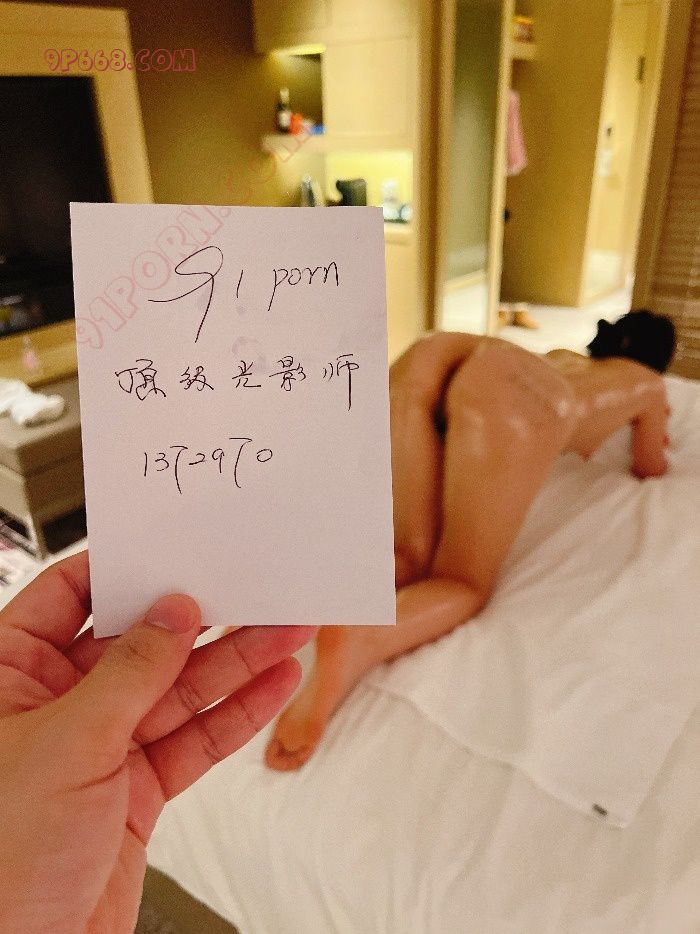 9P668.COM
91PORN.COM
91 porn
顶级光影师